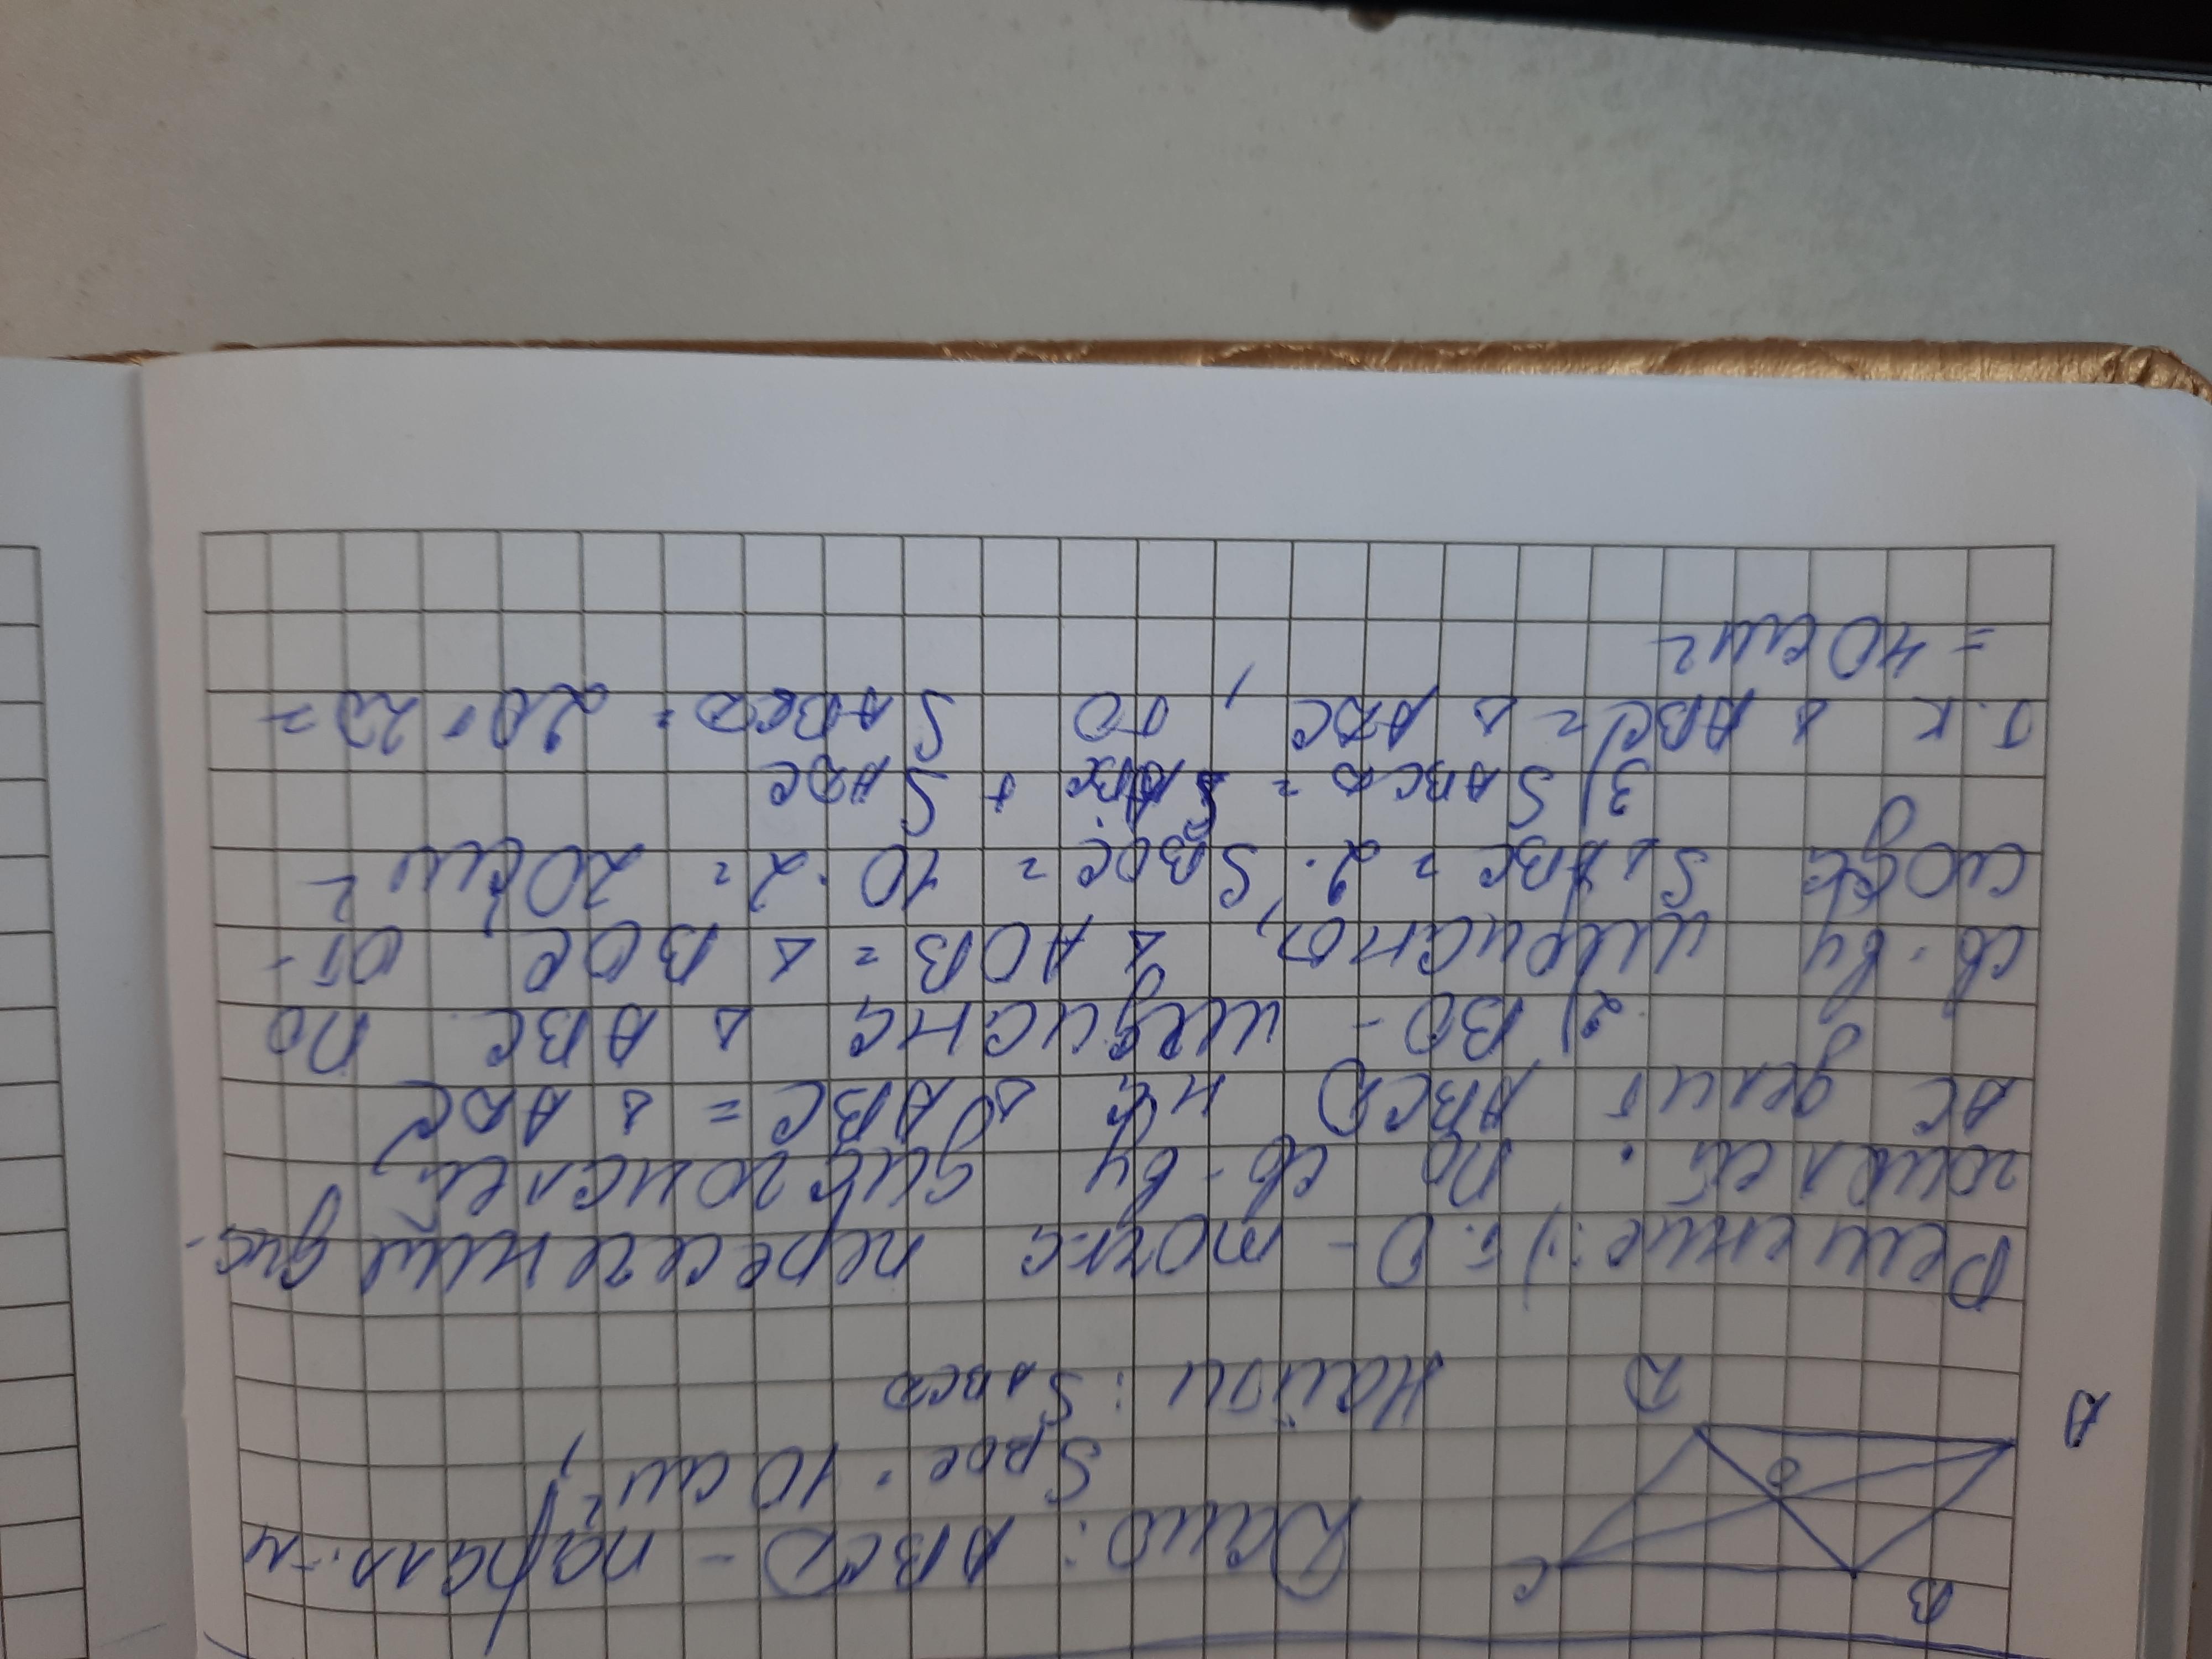 B
C
Дано: ABCD - паралл-м
O
S BOC = 10 см²,
A
D
Найти: S ABCD
Решение: 1) т. O - точка пересечения диа-
гоналей. По св-ву диагоналей,
AC делит ABCD на △ABC = △ADC
2) BO - медиана △ABC. по
св-ву медианы, △AOB = △BOC, от-
сюда S△ABC = 2·S BOC = 10·2 = 20 см²
3) S ABCD = S ABC + S ADC
т.к △ABC = △ADC, то S ABCD = 20+20=
= 40 см²